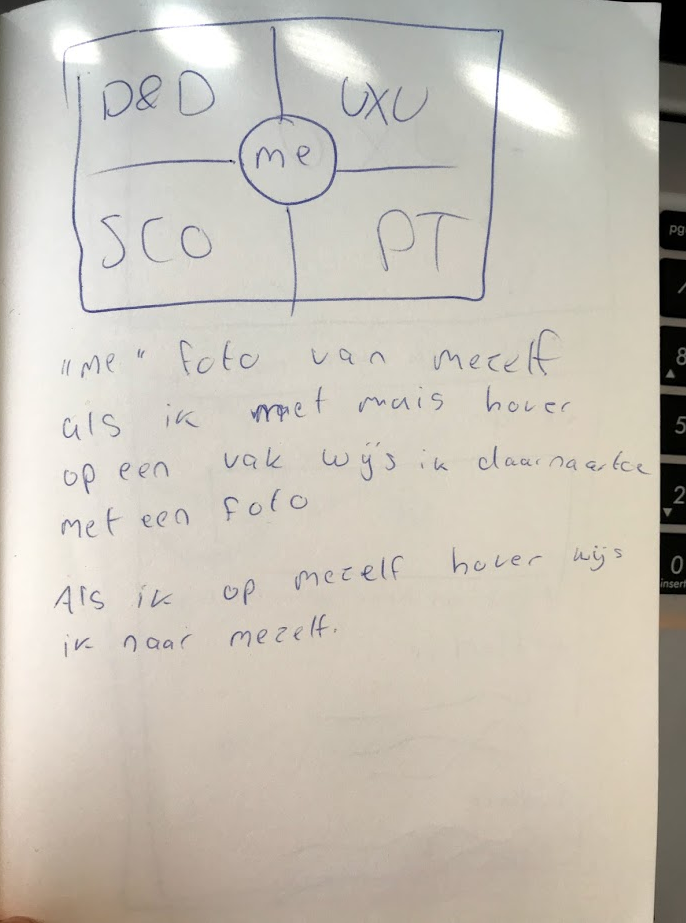 D&D UXU
me
SCO PT
"me" foto van mezelf
als ik met muis hover
op een vak wijs ik daarnaartoe
met een foto
Als ik op mezelf hover wijs
ik naar mezelf.
pg
8
5
2
0
insert